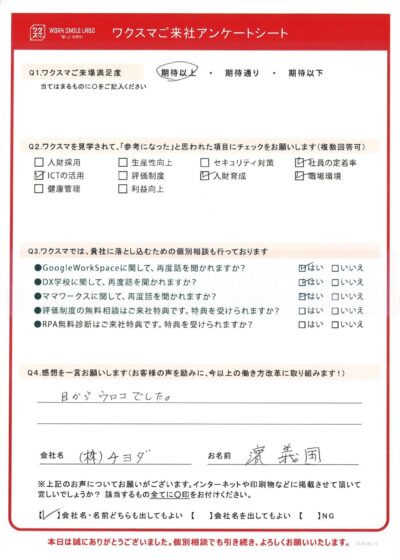 ワクスマ WORK SMILE LABO
ワクスマご来社アンケートシート
Q1.ワクスマご来場満足度 期待以上 ・ 期待通り ・ 期待以下
当てはまるものに○をご記入ください
Q2.ワクスマを見学されて、「参考になった」と思われた項目にチェックをお願いします(複数回答可)
□人財採用 □生産性向上 □セキュリティ対策 ☑社員の定着率
☑ICTの活用 □評価制度 ☑人財育成 ☑職場環境
□健康管理 □利益向上
Q3.ワクスマでは、貴社に落とし込むための個別相談も行っております
●GoogleWorkSpaceに関して、再度話を聞かれますか? ☑はい □いいえ
●DX学校に関して、再度話を聞かれますか? □はい □いいえ
●ママワークスに関して、再度話を聞かれますか? ☑はい □いいえ
●評価制度の無料相談はご来社特典です。特典を受けられますか? □はい □いいえ
●RPA無料診断はご来社特典です。特典を受けられますか? □はい □いいえ
Q4.感想を一言お願いします(お客様の声を励みに、今以上の働き方改革に取り組みます!)
目からウロコでした。
会社名 (株)チヨダ お名前 濱 義国
※上記のお声についてお願いがございます。インターネットや印刷物などに掲載させて頂いて
宜しいでしょうか? 該当するもの全てに○印をお付けください。
【✓】会社名・名前どちらも出してもよい 【 】会社名を出してもよい 【 】NG
本日は誠にありがとうございました。個別相談でも引き続き、よろしくお願いいたします。